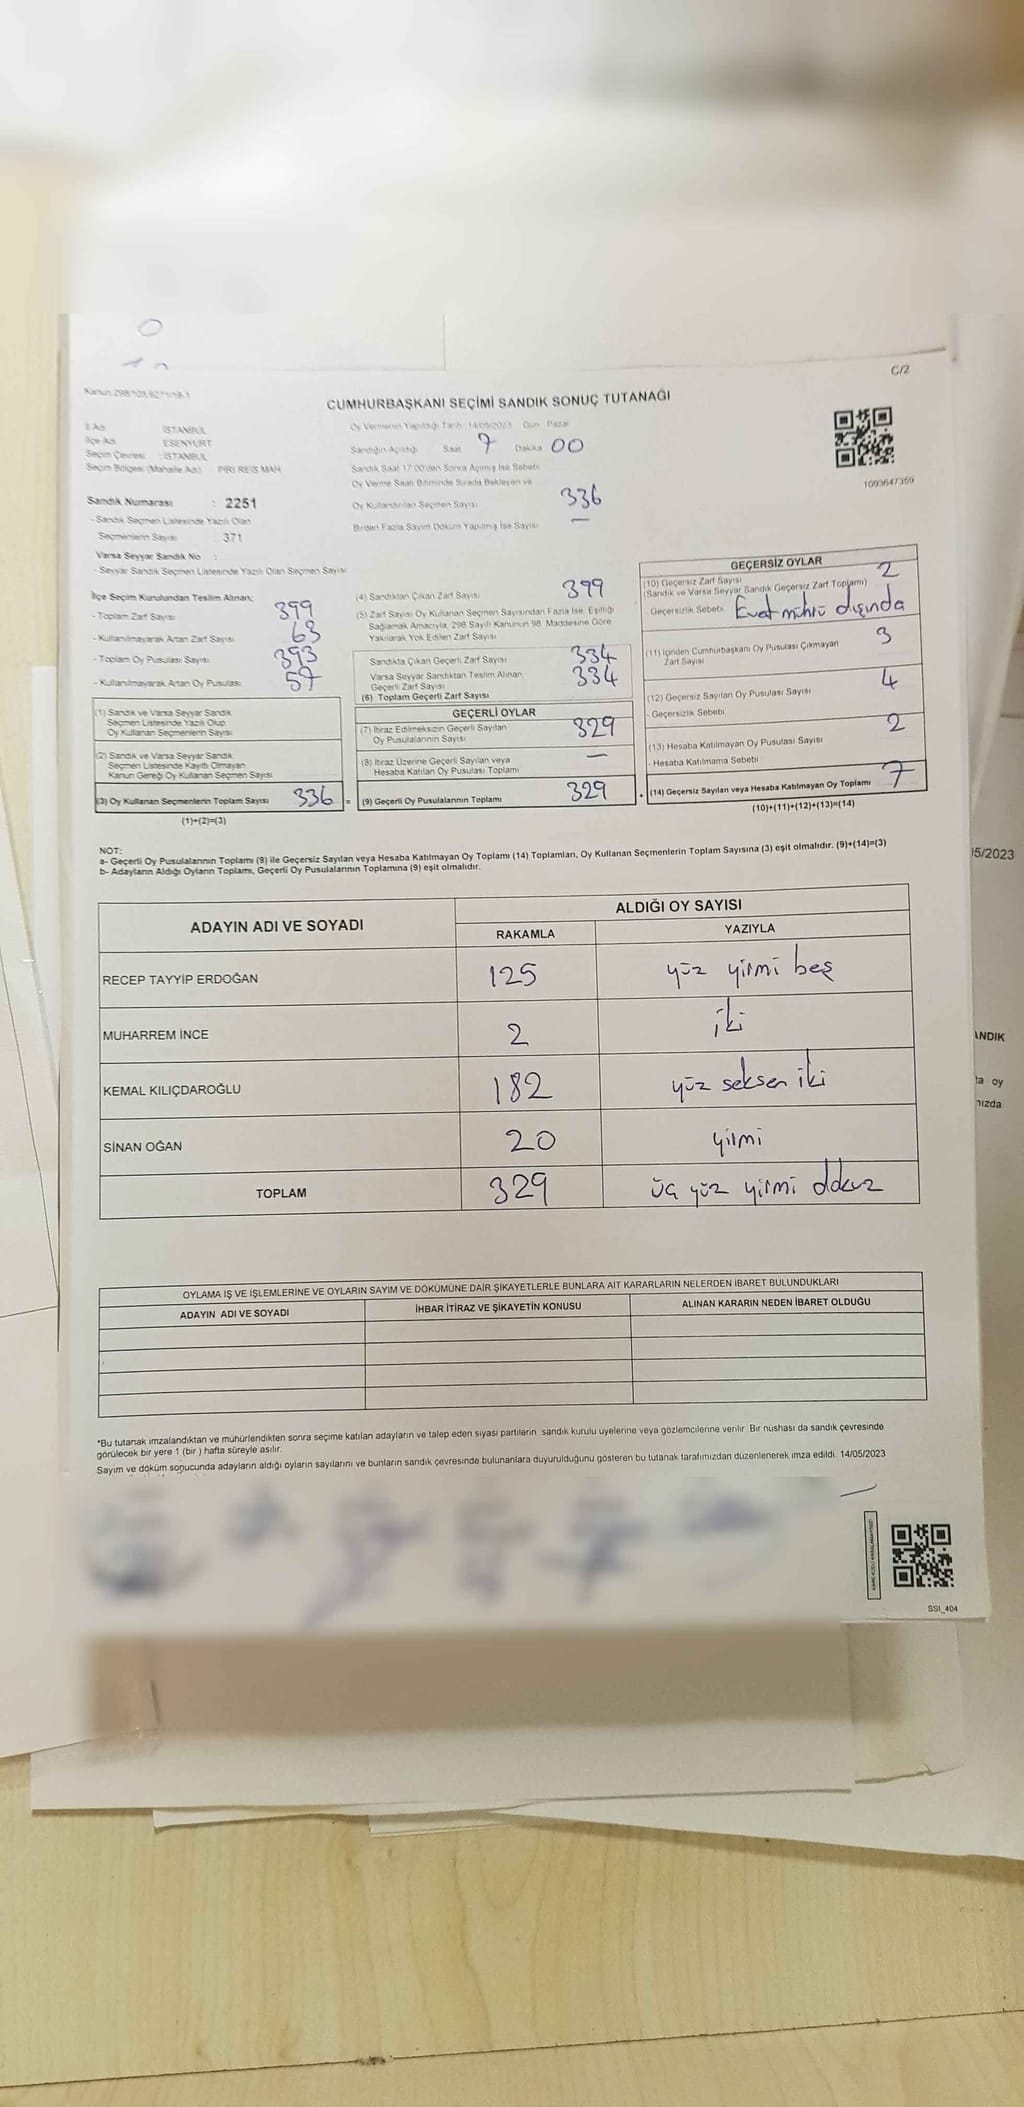 C/2
Kanun:298/103,6271/19-1
CUMHURBAŞKANI SEÇİMİ SANDIK SONUÇ TUTANAĞI
İl Adı : İSTANBUL
İlçe Adı : ESENYURT
Seçim Çevresi : İSTANBUL
Seçim Bölgesi (Mahalle Adı) : PİRİ REİS MAH
Sandık Numarası : 2251
- Sandık Seçmen Listesinde Yazılı Olan
Seçmenlerin Sayısı : 371
Varsa Seyyar Sandık No :
- Seyyar Sandık Seçmen Listesinde Yazılı Olan Seçmen Sayısı
Oy Vermenin Yapıldığı Tarih 14/05/2023 Gün Pazar
Sandığın Açıldığı Saat 7 Dakika 00
Sandık Saat 17:00'den Sonra Açılmış İse Sebebi
Oy Verme Saati Bitiminde Sırada Bekleyen ve
Oy Kullandırılan Seçmen Sayısı 336
Birden Fazla Sayım Döküm Yapılmış İse Sayısı —
1093647359
İlçe Seçim Kurulundan Teslim Alınan;
- Toplam Zarf Sayısı 399
- Kullanılmayarak Artan Zarf Sayısı 63
- Toplam Oy Pusulası Sayısı 393
- Kullanılmayarak Artan Oy Pusulası 57
(1) Sandık ve Varsa Seyyar Sandık
Seçmen Listesinde Yazılı Olup
Oy Kullanan Seçmenlerin Sayısı
(2) Sandık ve Varsa Seyyar Sandık
Seçmen Listesinde Kayıtlı Olmayan
Kanun Gereği Oy Kullanan Seçmen Sayısı
(3) Oy Kullanan Seçmenlerin Toplam Sayısı 336 =
(1)+(2)=(3)
(4) Sandıktan Çıkan Zarf Sayısı 399
(5) Zarf Sayısı Oy Kullanan Seçmen Sayısından Fazla İse, Eşitliği
Sağlamak Amacıyla, 298 Sayılı Kanunun 98. Maddesine Göre
Yakılarak Yok Edilen Zarf Sayısı
Sandıkta Çıkan Geçerli Zarf Sayısı 334
Varsa Seyyar Sandıktan Teslim Alınan
Geçerli Zarf Sayısı 334
(6) Toplam Geçerli Zarf Sayısı
GEÇERLİ OYLAR
(7) İtiraz Edilmeksizin Geçerli Sayılan
Oy Pusulalarının Sayısı 329
(8) İtiraz Üzerine Geçerli Sayılan veya
Hesaba Katılan Oy Pusulası Toplamı —
(9) Geçerli Oy Pusulalarının Toplamı 329
GEÇERSİZ OYLAR
(10) Geçersiz Zarf Sayısı 2
(Sandık ve Varsa Seyyar Sandık Geçersiz Zarf Toplamı)
Geçersizlik Sebebi Evet mührü dışında
(11) İçinden Cumhurbaşkanı Oy Pusulası Çıkmayan 3
Zarf Sayısı
(12) Geçersiz Sayılan Oy Pusulası Sayısı 4
- Geçersizlik Sebebi
(13) Hesaba Katılmayan Oy Pusulası Sayısı 2
- Hesaba Katılmama Sebebi
(14) Geçersiz Sayılan veya Hesaba Katılmayan Oy Toplamı 7
(10)+(11)+(12)+(13)=(14)
NOT:
a- Geçerli Oy Pusulalarının Toplamı (9) ile Geçersiz Sayılan veya Hesaba Katılmayan Oy Toplamı (14) Toplamları, Oy Kullanan Seçmenlerin Toplam Sayısına (3) eşit olmalıdır. (9)+(14)=(3)
b- Adayların Aldığı Oyların Toplamı, Geçerli Oy Pusulalarının Toplamına (9) eşit olmalıdır.
ADAYIN ADI VE SOYADI ALDIĞI OY SAYISI
RAKAMLA YAZIYLA
RECEP TAYYİP ERDOĞAN 125 yüz yirmi beş
MUHARREM İNCE 2 iki
KEMAL KILIÇDAROĞLU 182 yüz seksen iki
SİNAN OĞAN 20 yirmi
TOPLAM 329 üç yüz yirmi dokuz
OYLAMA İŞ VE İŞLEMLERİNE VE OYLARIN SAYIM VE DÖKÜMÜNE DAİR ŞİKAYETLERLE BUNLARA AİT KARARLARIN NELERDEN İBARET BULUNDUKLARI
ADAYIN ADI VE SOYADI İHBAR İTİRAZ VE ŞİKAYETİN KONUSU ALINAN KARARIN NEDEN İBARET OLDUĞU
*Bu tutanak imzalandıktan ve mühürlendikten sonra seçime katılan adayların ve talep eden siyasi partilerin sandık kurulu üyelerine veya gözlemcilerine verilir. Bir nüshası da sandık çevresinde
görülecek bir yere 1 (bir) hafta süreyle asılır.
Sayım ve döküm sonucunda adayların aldığı oyların sayılarını ve bunların sandık çevresinde bulunanlara duyurulduğunu gösteren bu tutanak tarafımızdan düzenlenerek imza edildi. 14/05/2023
SSI_404
5/2023
ANDIK
ta oy
nızda